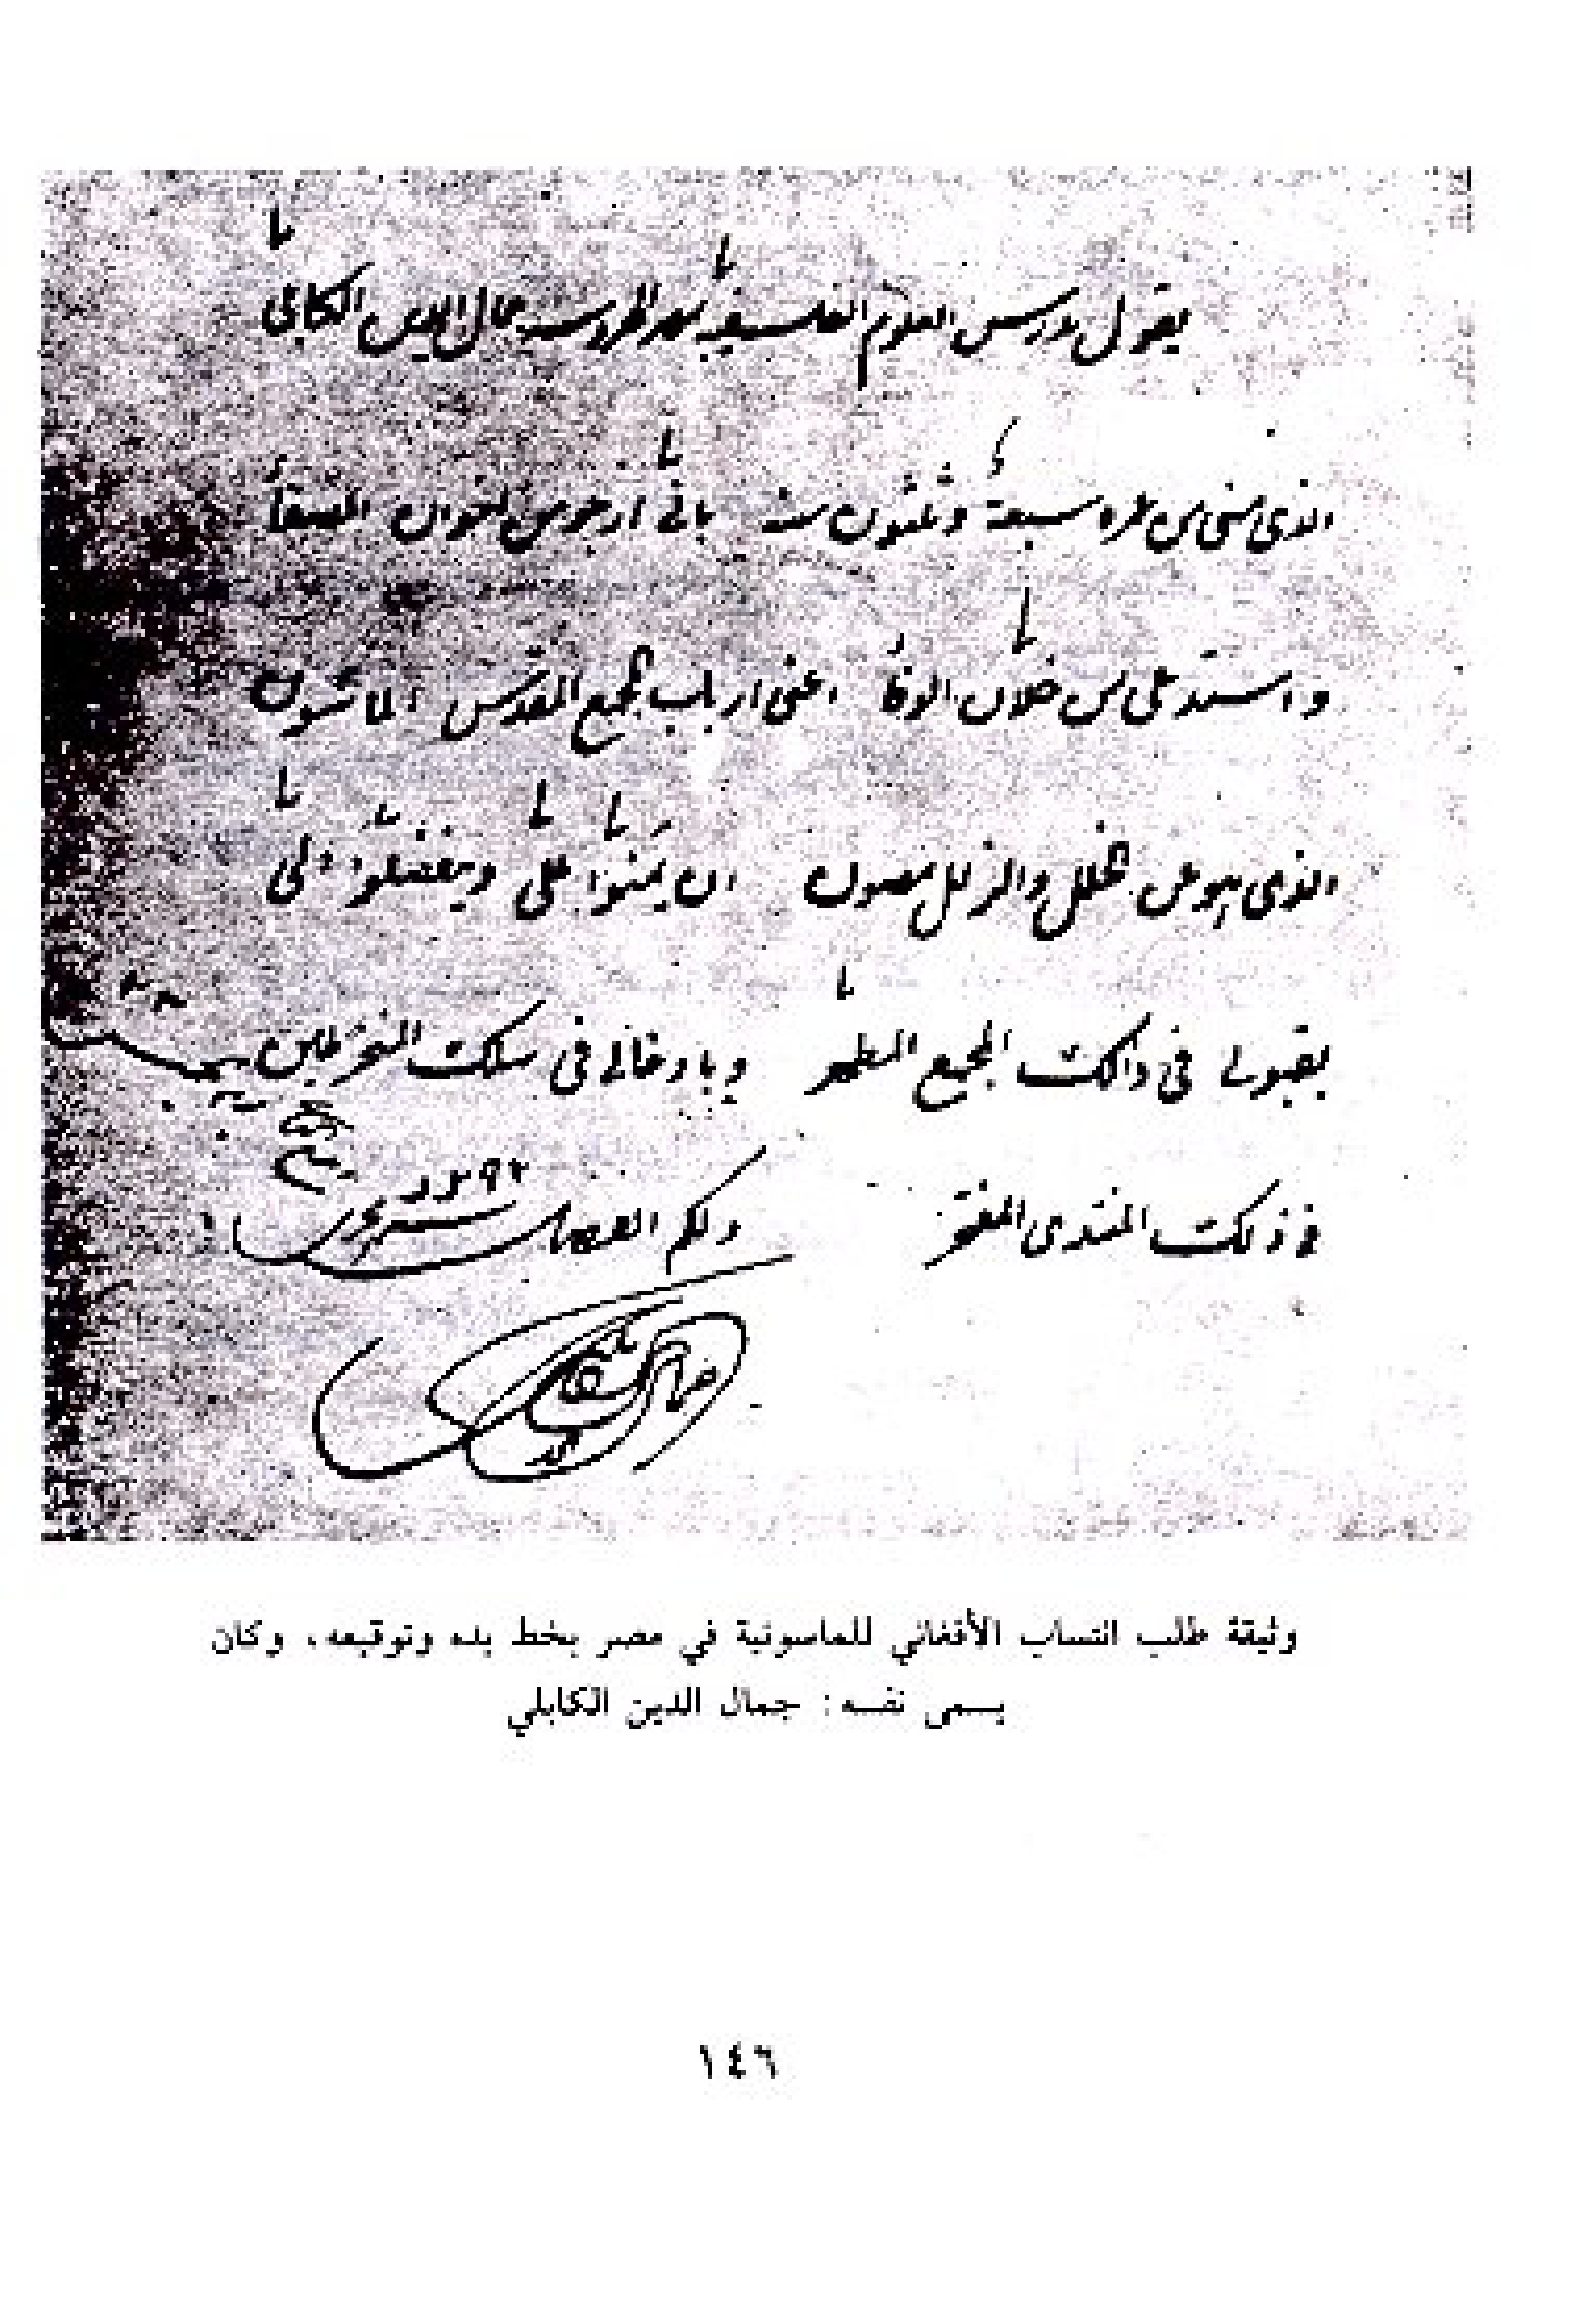 يقول مدرس العلوم الفلسفية بمصر المحروسة جمال الدين الكابلي
الذي مضى من عمره سبعة وثلثون سنة بانى ارجو من اخوان الصفا
واستدعى من خلان الوفا اعنى ارباب المجمع المقدس الماسون
الذى هو عن الخلل والزلل مصون ان يمنوا علي ويتفضلوا الي
بقبولى فى ذالك المجمع المطهر وبادخالى فى سلك المنخرطين
فى ذلك المنتدى المفتخر ولكم الفضل
١٢٩٢
جمال الدين الكابلي
وثيقة طلب انتساب الأفغاني للماسونية في مصر بخط يده وتوقيعه، وكان
يسمى نفسه: جمال الدين الكابلي
١٤٦